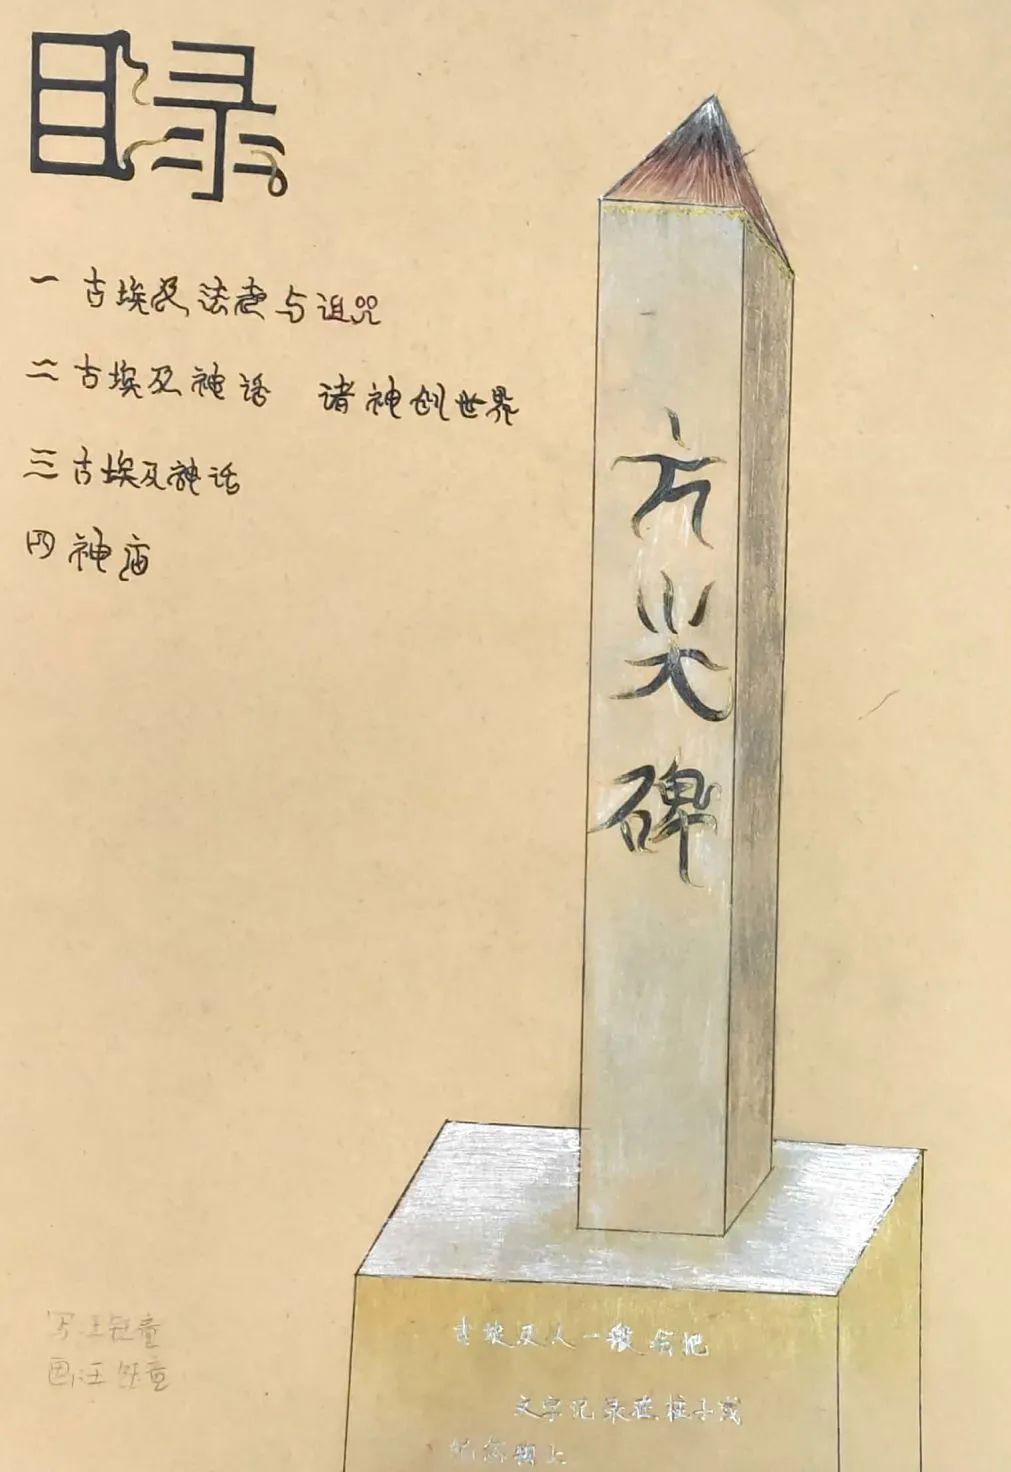 目录
一 古埃及法老与诅咒
二 古埃及神话 诸神创世界
三 古埃及神话
四 神庙
方尖碑
古埃及人一般会把
文字记录在柱子或
纪念物上
写:汪钰童
画:汪钰童